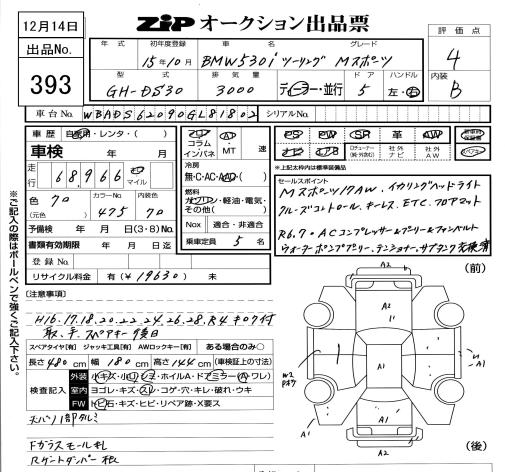 12月14日
出品No.
393
ZIPオークション出品票
評価点
4
内装
B
年式 初年度登録 車名 グレード
15年10月 BMW530iツーリング Mスポーツ
型式 排気量 ドア ハンドル
GH-DS30 3000 ディーラー・並行 5 左・右
車台No. WBADS62090GL81802 シリアルNo.
車歴 自家用・レンタ・( )
車検 年 月
走行 68,966 km マイル
色 70 カラーNo. 475 内装色 70
(元色)
予備検 年 月 日(3・6)No.
書類有効期限 年 月 日迄
登録No.
リサイクル料金 有(¥19630) 未
シフト コラム インパネ AT・MT 速
冷房
無・C・AC・AAC・( )
燃料
ガソリン・軽油・電気・その他( )
Nox 適合・非適合
乗車定員 5 名
PS PW SR 革 AW
ナビ エアB 社外ナビ 社外AW
★上記太枠内は標準装備品
セールスポイント
Mスポーツ17AW、イカリングヘッドライト
クルーズコントロール、キーレス、ETC、フロアマット
R6.7・ACコンプレッサー&プーリー&ファンベルト
ウォーターポンププーリー、テンショナー、サブタンク交換済
※ご記入の際はボールペンで強くご記入下さい。
[注意事項]
H16.17.18.20.22.24.26.28.R4キロク付
取、手、スペアキー後日
スペアタイヤ[有] ジャッキ工具[有] AWロックキー[有] ある場合のみ○
長さ480cm 幅180cm 高さ144cm (車検証上の寸法)
検査記入
外装 小キズ・小凹・シミ・ホイルA・ドアミラー(A・ワレ)
室内 ヨゴレ・キズ・スレ・コゲ・穴・キレ・破れ・ウキ
FW トビ石・キズ・ヒビ・リペア跡・X要ス
天バリ1部タルミ
Fガラスモール札
Rゲートダンパー
(前)
A2
A2
A1
W2
A1
A1
A2
(後)